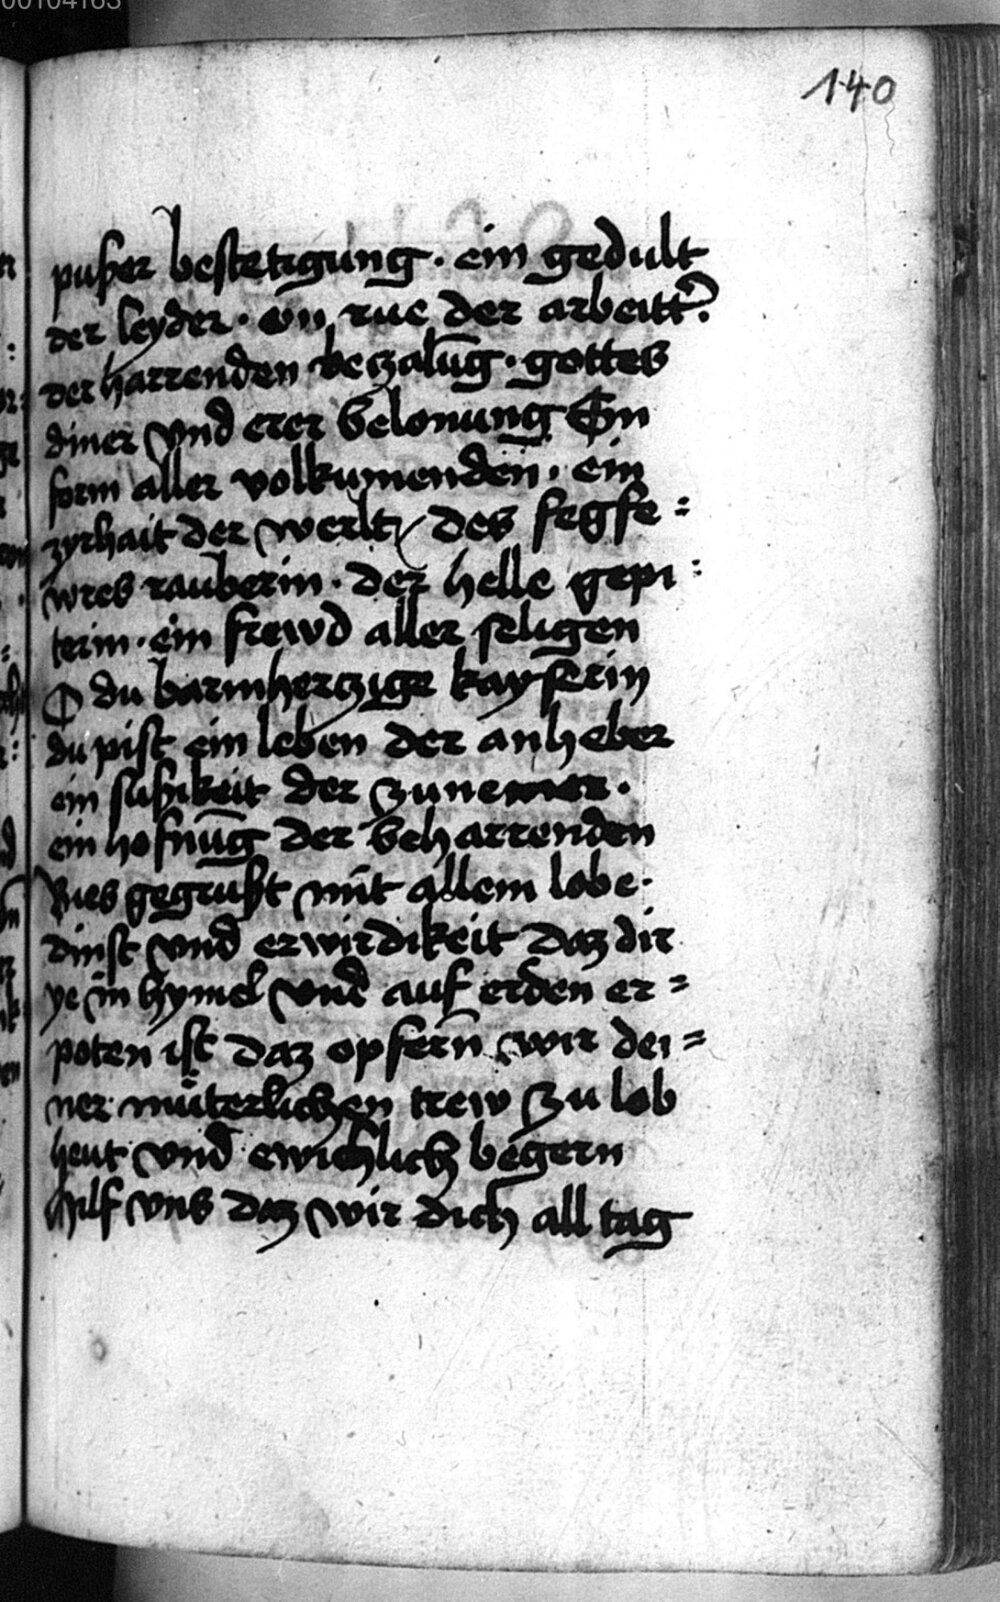 00104163
140
pußer bestetigung · ein gedult
der leyder · ein rue der arbeitt͛ ·
der harrenden beczalūg · gottes
diner vnd erer belonung Ein
form aller volkumenden · ein
zyrhait der werlt / des fegfe=
wres rauberin · der helle gepi=
terin · ein frewd aller seligen
O du barmherczige kayserin
du pist ein leben der anheber
ein sußikeit der zunemer ·
ein hofnūg der beharrenden
Bies gegrußt mit allem lobe ·
dinst vnd erwirdikeit daz dir
ye in hymel vnd auf erden er=
poten ist daz opfern wir dei=
ner müterlichen trew zu lob
heut vnd ewichlich begern
hilf vns daz wir dich all tag